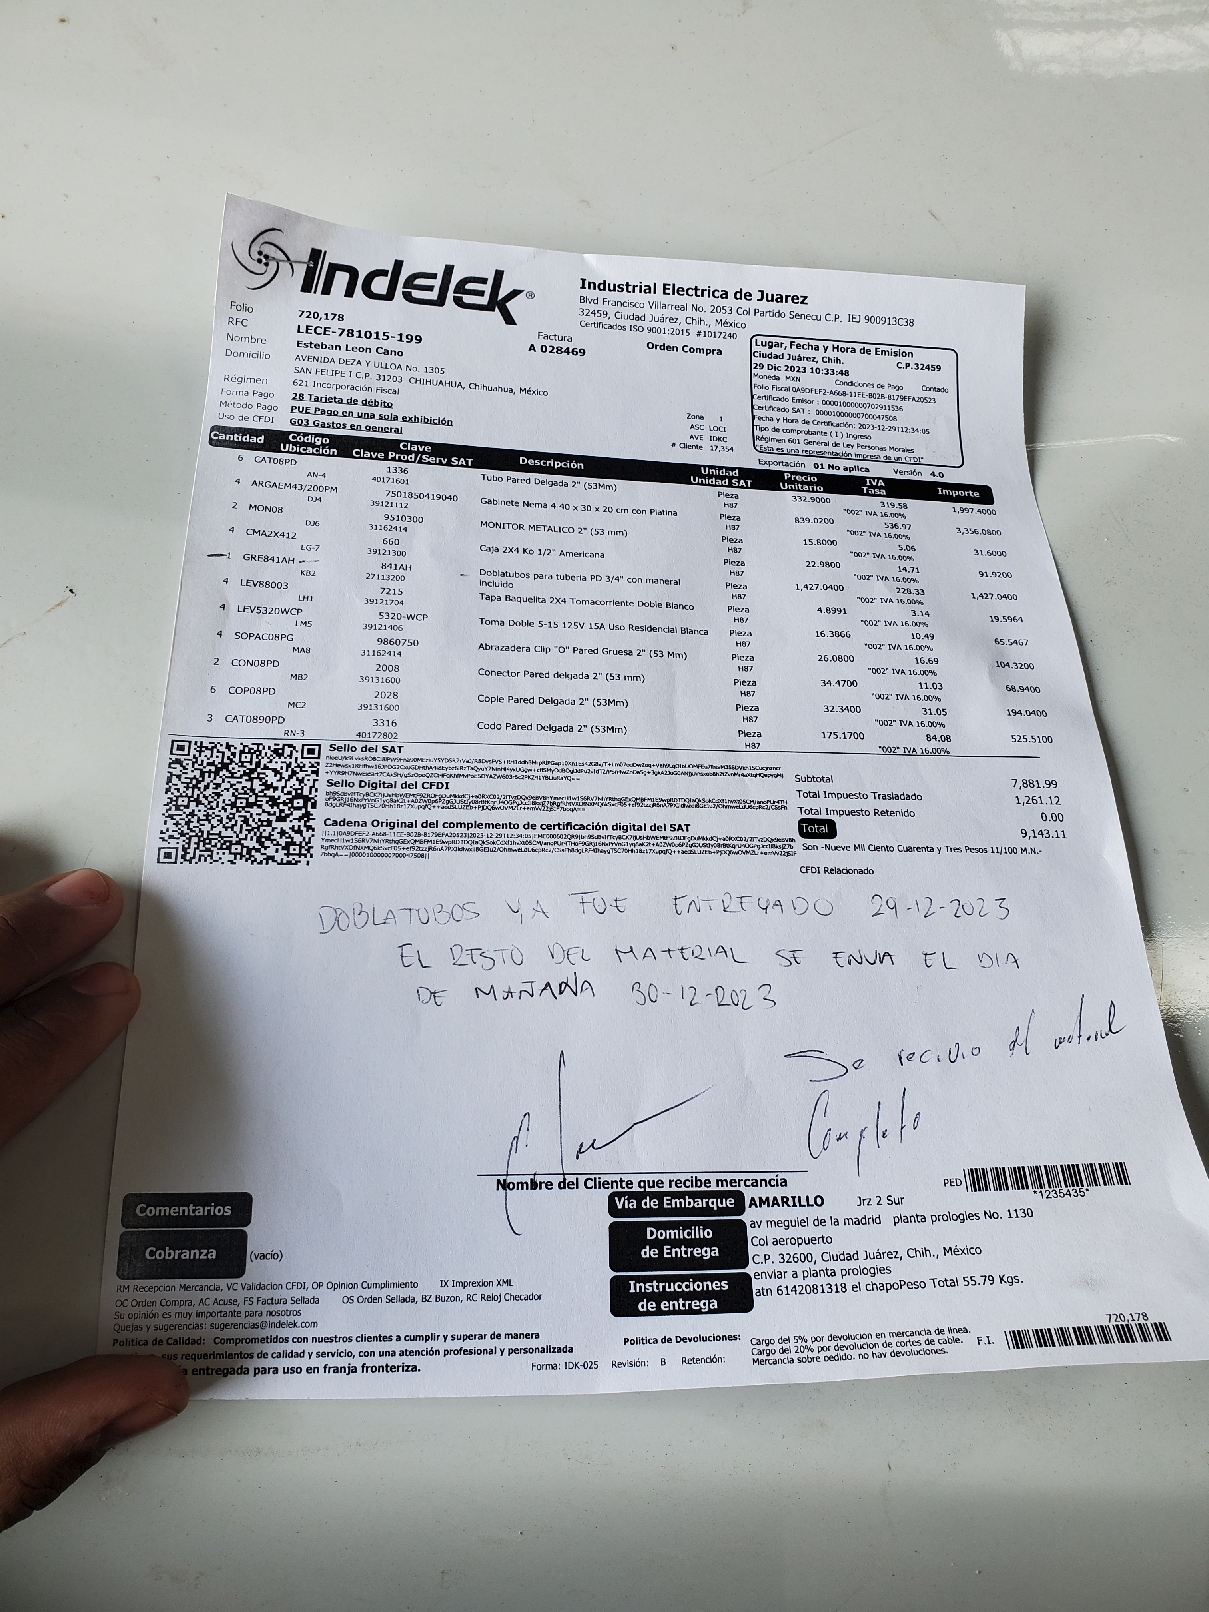 Indelek®
Industrial Electrica de Juarez
Blvd Francisco Villarreal No. 2053 Col Partido Senecu C.P. IEJ 900913C38
32459, Ciudad Juárez, Chih., México
Certificados ISO 9001:2015 #1017240
Folio 720,178
RFC LECE-781015-199
Factura
A 028469
Orden Compra
Nombre Esteban Leon Cano
Domicilio AVENIDA DEZA Y ULLOA No. 1305
SAN FELIPE I C.P. 31203 CHIHUAHUA, Chihuahua, México
Régimen 621 Incorporación Fiscal
Forma Pago 28 Tarjeta de débito
Metodo Pago PUE Pago en una sola exhibición
Uso de CFDI G03 Gastos en general
Lugar, Fecha y Hora de Emision
Ciudad Juárez, Chih. C.P.32459
29 Dic 2023 10:33:48
Moneda MXN Condiciones de Pago Contado
Certificado Emisor : 00001000000707911536
Certificado SAT : 00001000000700047508
Fecha y Hora de Certificación: 2023-12-29T12:34:05
Tipo de comprobante ( I ) Ingreso
Régimen 601 General de Ley Personas Morales
"Esta es una representación impresa de un CFDI"
Zona 1
ASC LOCI
AVE IDKC
# Cliente 17,354
Exportación 01 No aplica Versión 4.0
Cantidad Código Ubicación Clave Clave Prod/Serv SAT Descripción Unidad Unidad SAT Precio Unitario IVA Tasa Importe
6 CAT08PD 1336 Tubo Pared Delgada 2" (53Mm) Pieza 332.9000 319.58 1,997.4000
AN-4 40171601 H87 "002" IVA 16.00%
4 ARGAEM43/200PM 7501850419040 Gabinete Nema 4 40 x 30 x 20 cm con Platina Pieza 839.0200 536.97 3,356.0800
DJ4 39121112 H87 "002" IVA 16.00%
2 MON08 9510300 MONITOR METALICO 2" (53 mm) Pieza 15.8000 5.06 31.6000
DJ6 31162414 H87 "002" IVA 16.00%
4 CMA2X412 660 Caja 2X4 Ko 1/2" Americana Pieza 22.9800 14.71 91.9200
LG-7 39121300 H87 "002" IVA 16.00%
1 GRE841AH 841AH Doblatubos para tuberia PD 3/4" con maneral incluido Pieza 1,427.0400 228.33 1,427.0400
KB2 27113200 H87 "002" IVA 16.00%
4 LEV88003 7215 Tapa Baquelita 2X4 Tomacorriente Doble Blanco Pieza 4.8991 3.14 19.5964
LH1 39121704 H87 "002" IVA 16.00%
4 LEV5320WCP 5320-WCP Toma Doble 5-15 125V 15A Uso Residencial Blanca Pieza 16.3866 10.49 65.5467
LM5 39121406 H87 "002" IVA 16.00%
4 SOPAC08PG 9860750 Abrazadera Clip "O" Pared Gruesa 2" (53 Mm) Pieza 26.0800 16.69 104.3200
MA8 31162414 H87 "002" IVA 16.00%
2 CON08PD 2008 Conector Pared delgada 2" (53 mm) Pieza 34.4700 11.03 68.9400
MB2 39131600 H87 "002" IVA 16.00%
6 COP08PD 2028 Cople Pared Delgada 2" (53Mm) Pieza 32.3400 31.05 194.0400
MC2 39131600 H87 "002" IVA 16.00%
3 CAT0890PD 3316 Codo Pared Delgada 2" (53Mm) Pieza 175.1700 84.08 525.5100
RN-3 40172802 H87 "002" IVA 16.00%
Sello del SAT
Sello Digital del CFDI
Cadena Original del complemento de certificación digital del SAT
Subtotal 7,881.99
Total Impuesto Trasladado 1,261.12
Total Impuesto Retenido 0.00
Total 9,143.11
Son -Nueve Mil Ciento Cuarenta y Tres Pesos 11/100 M.N.-
CFDI Relacionado
DOBLATUBOS YA FUE ENTREGADO 29-12-2023
EL RESTO DEL MATERIAL SE ENVIA EL DIA
DE MAÑANA 30-12-2023
Se recivio el material
Completo
Nombre del Cliente que recibe mercancía
PED *1235435*
Comentarios
Cobranza (vacío)
Vía de Embarque AMARILLO Jrz 2 Sur
Domicilio de Entrega
av meguiel de la madrid planta prologies No. 1130
Col aeropuerto
C.P. 32600, Ciudad Juárez, Chih., México
Instrucciones de entrega
enviar a planta prologies
atn 6142081318 el chapoPeso Total 55.79 Kgs.
RM Recepción Mercancia, VC Validacion CFDI, OP Opinion Cumplimiento IX Imprexion XML
OC Orden Compra, AC Acuse, FS Factura Sellada OS Orden Sellada, BZ Buzon, RC Reloj Checador
Su opinión es muy importante para nosotros
Quejas y sugerencias: sugerencias@indelek.com
Politica de Calidad: Comprometidos con nuestros clientes a cumplir y superar de manera
sus requerimientos de calidad y servicio, con una atención profesional y personalizada
entregada para uso en franja fronteriza.
Forma: IDK-025 Revisión: B Retención:
Politica de Devoluciones: Cargo del 5% por devolucion en mercancia de linea.
Cargo del 20% por devolucion de cortes de cable.
Mercancia sobre pedido, no hay devoluciones.
F.I. 720,178